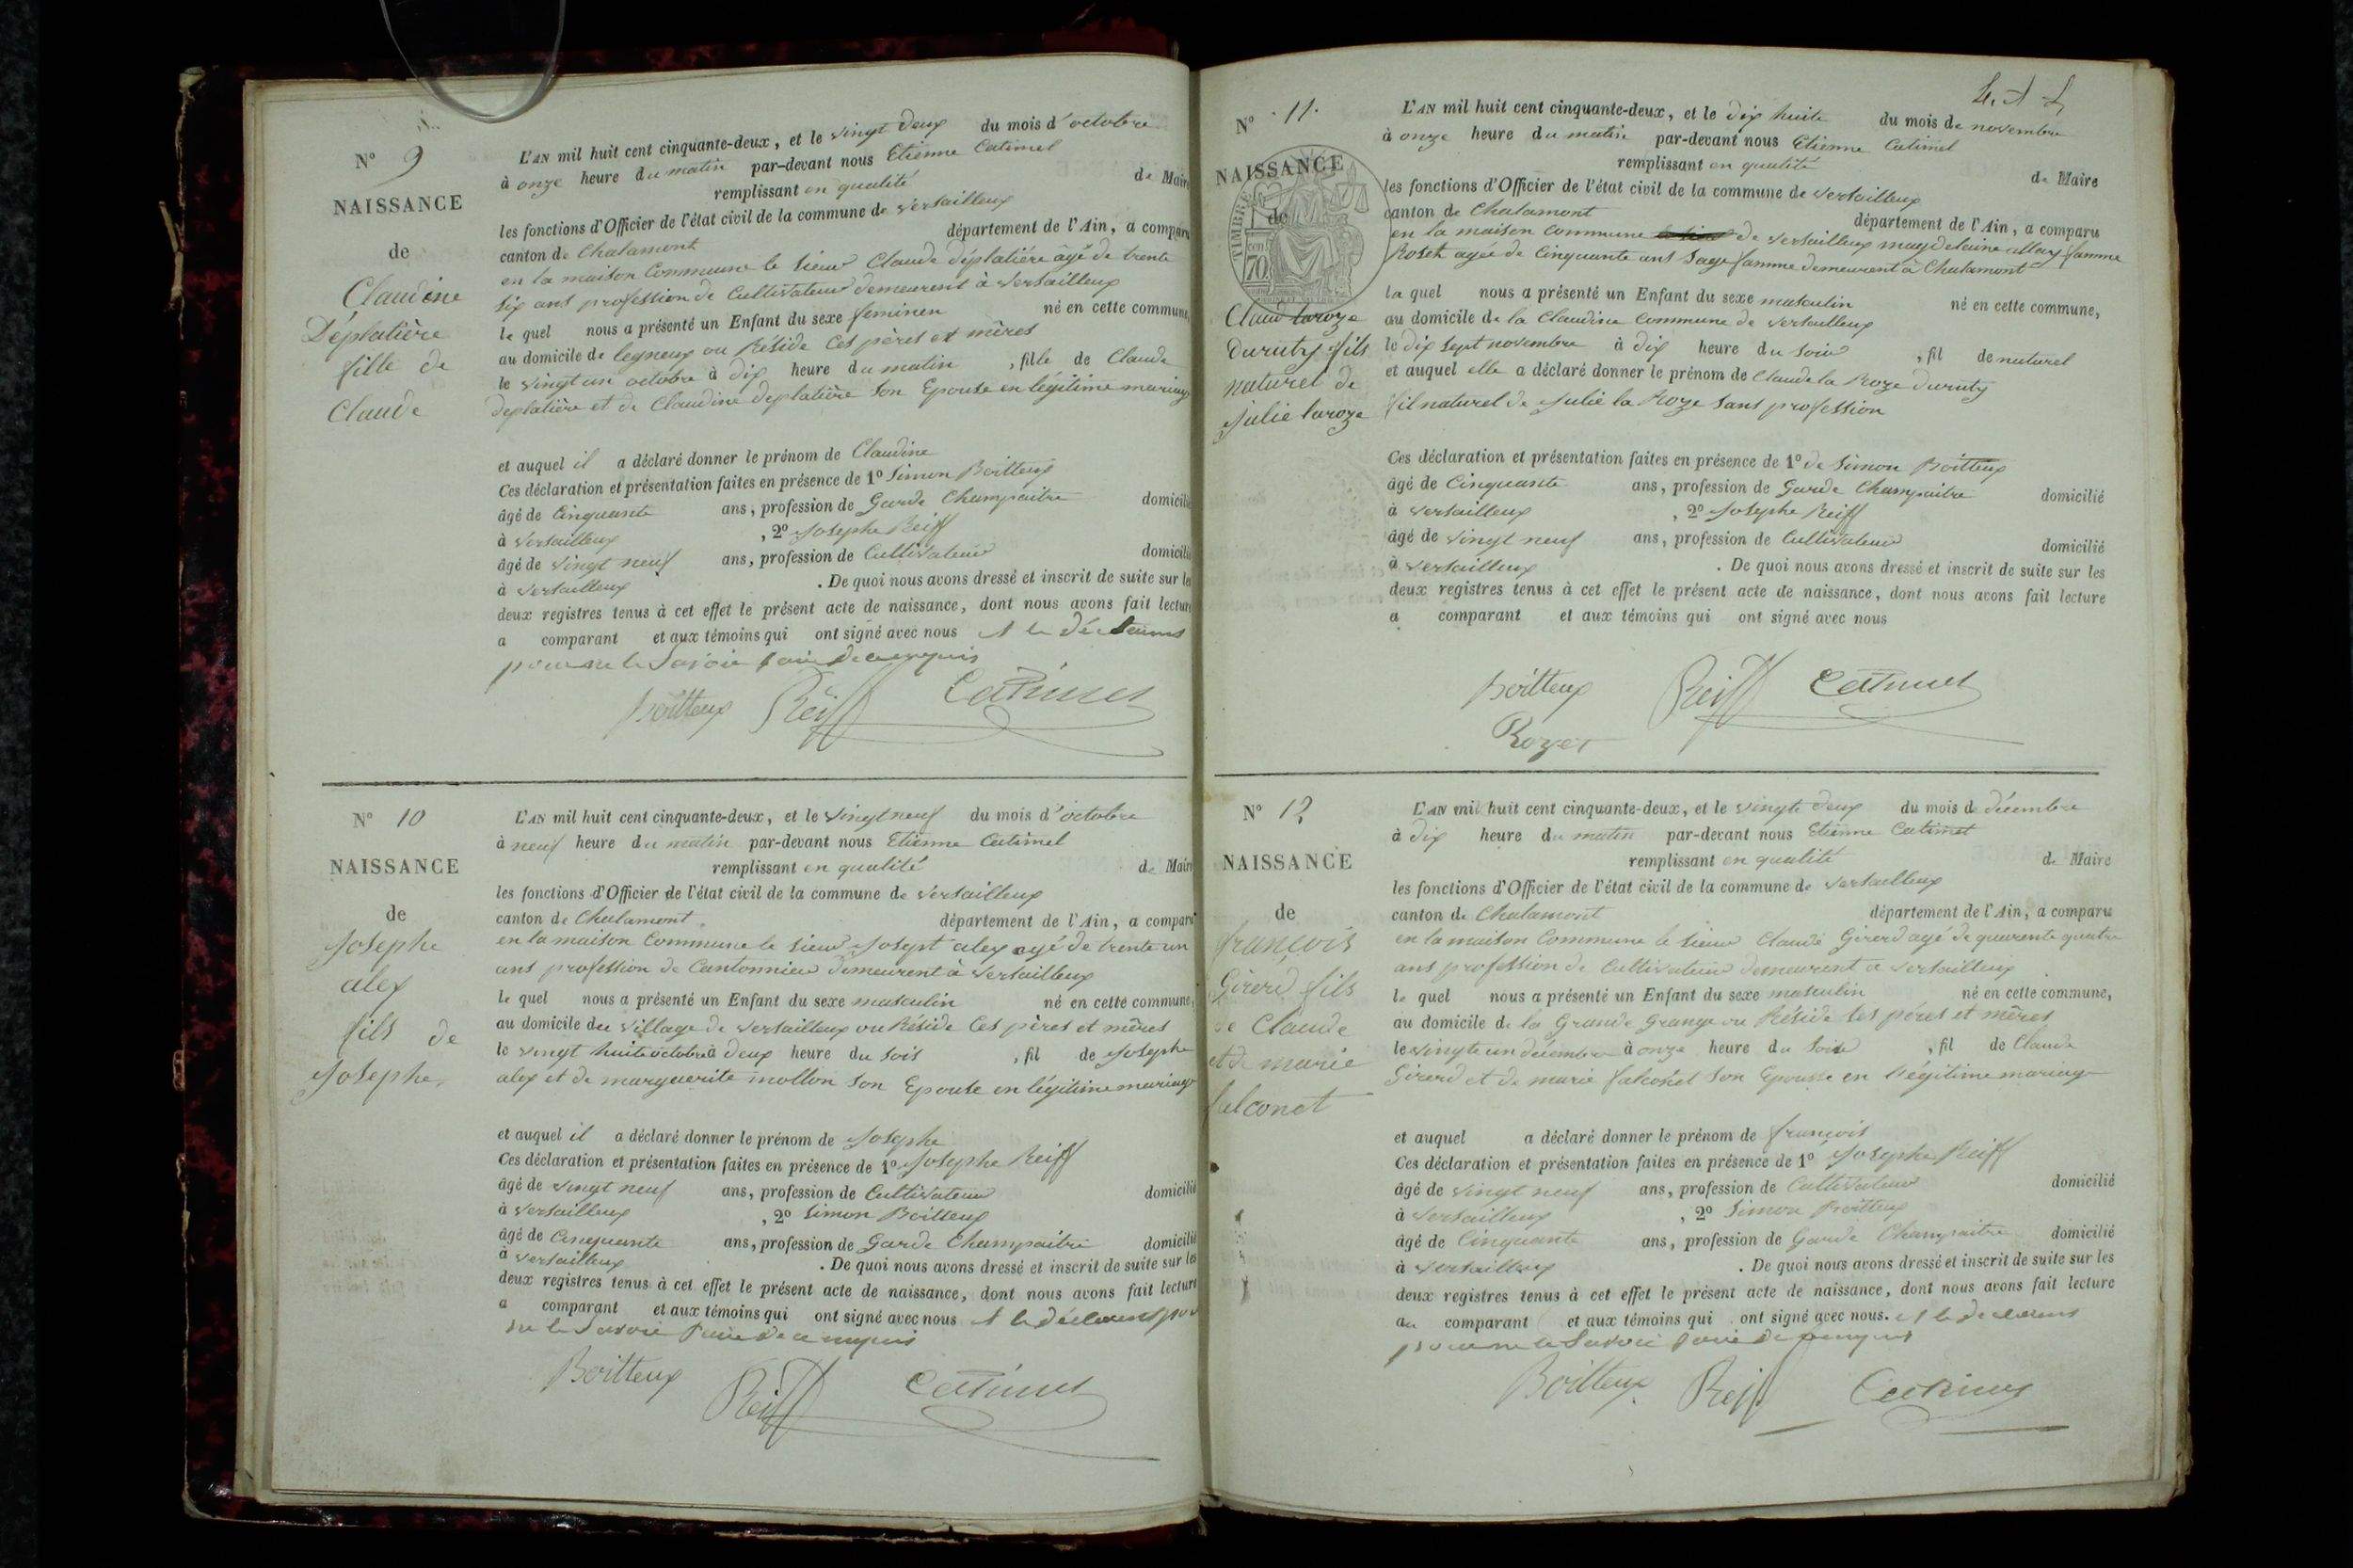 N° 9
NAISSANCE
de
Claudine
Déplatière
fille de
Claude
L'AN mil huit cent cinquante-deux, et le vingt deux du mois d'octobre
à onze heure du matin par-devant nous Etienne Catimel
remplissant en qualité de Maire
les fonctions d'Officier de l'état civil de la commune de versailleux
canton de Chalamont département de l'Ain, a comparu
en la maison Commune le sieur Claude déplatière âgé de trente
six ans profession de Cultivateur demeurent à versailleux
le quel nous a présenté un Enfant du sexe feminen né en cette commune,
au domicile de legneux ou Réside Ces pères et mères
le vingt un octobre à dix heure du matin , fille de Claude
deplatière et de Claudine deplatière son Epouse en légitime mariage
et auquel il a déclaré donner le prénom de Claudine
Ces déclaration et présentation faites en présence de 1° Simon Boitteux
âgé de Cinquante ans, profession de Garde Champaitre domicilié
à versailleux , 2° Josephe Reiff
âgé de vingt neuf ans, profession de Cultivateur domicilié
à versailleux . De quoi nous avons dressé et inscrit de suite sur les
deux registres tenus à cet effet le présent acte de naissance, dont nous avons fait lecture
a comparant et aux témoins qui ont signé avec nous
pour ne le savoir
Boitteux Reiff Catimel
N° 10
NAISSANCE
de
Josephe
alex
fils de
Josephe
L'AN mil huit cent cinquante-deux, et le vingt neuf du mois d'octobre
à neuf heure du matin par-devant nous Etienne Catimel
remplissant en qualité de Maire
les fonctions d'Officier de l'état civil de la commune de versailleux
canton de Chalamont département de l'Ain, a comparu
en la maison Commune le sieur Josept alex agé de trente un
ans profession de Cantonnieu demeurent à versailleux
le quel nous a présenté un Enfant du sexe masculin né en cette commune,
au domicile du village de versailleux ou Réside Ces pères et mères
le vingt huite octobre à deux heure du soir , fil de Josephe
alex et de marguerite mollon son Epouse en légitime mariage
et auquel il a déclaré donner le prénom de Josephe
Ces déclaration et présentation faites en présence de 1° Josephe Reiff
âgé de vingt neuf ans, profession de Cultivateur domicilié
à versailleux , 2° Simon Boitteux
âgé de Cinquante ans, profession de Garde Champaitre domicilié
à versailleux . De quoi nous avons dressé et inscrit de suite sur les
deux registres tenus à cet effet le présent acte de naissance, dont nous avons fait lecture
a comparant et aux témoins qui ont signé avec nous
ne le savoir
Boitteux Reiff Catimel
N° 11.
NAISSANCE
de
TIMBRE
70
Claud laroze
Duruty fils
naturel de
Julie laroze
L'AN mil huit cent cinquante-deux, et le dix huite du mois de novembre
à onze heure du matin par-devant nous Etienne Catimel
remplissant en qualité de Maire
les fonctions d'Officier de l'état civil de la commune de versailleux
canton de Chalamont département de l'Ain, a comparu
en la maison commune de versailleux magdelaine allay famme
Roset agée de Cinquante ans sage famme demeurent à Chalamont
la quel nous a présenté un Enfant du sexe masculin né en cette commune,
au domicile de la Claudine Commune de versailleux
le dix sept novembre à dix heure du soir , fil de naturel
et auquel elle a déclaré donner le prénom de Claude la Roze duruty
fil naturel de Julie la Roze sans profession
Ces déclaration et présentation faites en présence de 1° de Simon Boitteux
âgé de Cinquante ans, profession de Garde Champaitre domicilié
à versailleux , 2° Josephe Reiff
âgé de vingt neuf ans, profession de Cultivateur domicilié
à versailleux . De quoi nous avons dressé et inscrit de suite sur les
deux registres tenus à cet effet le présent acte de naissance, dont nous avons fait lecture
a comparant et aux témoins qui ont signé avec nous
Boitteux Reiff Catimel
Rozet
N° 12
NAISSANCE
de
françois
Girerd fils
de Claude
et de marie
falconet
L'AN mil huit cent cinquante-deux, et le vingte deux du mois d décembre
à dix heure du matin par-devant nous Etienne Catimel
remplissant en qualité de Maire
les fonctions d'Officier de l'état civil de la commune de versailleux
canton de Chalamont département de l'Ain, a comparu
en la maison Commune le sieur Claude Girerd agé de quarente quatre
ans profession de Cultivateur demeurent a versailleux
le quel nous a présenté un Enfant du sexe masculin né en cette commune,
au domicile de la Grande Grange ou Réside ses pères et mères
le vingte un décembre à onze heure du soire , fil de Claude
Girerd et de marie falconet son Epousse en légitime mariage
et auquel a déclaré donner le prénom de françois
Ces déclaration et présentation faites en présence de 1° Josephe Reiff
âgé de vingt neuf ans, profession de Cultivateur domicilié
à versailleux , 2° Simon Boitteux
âgé de Cinquante ans, profession de Garde Champaitre domicilié
à versailleux . De quoi nous avons dressé et inscrit de suite sur les
deux registres tenus à cet effet le présent acte de naissance, dont nous avons fait lecture
au comparant et aux témoins qui ont signé avec nous.
pour ne le savoir
Boitteux Reiff Catimel